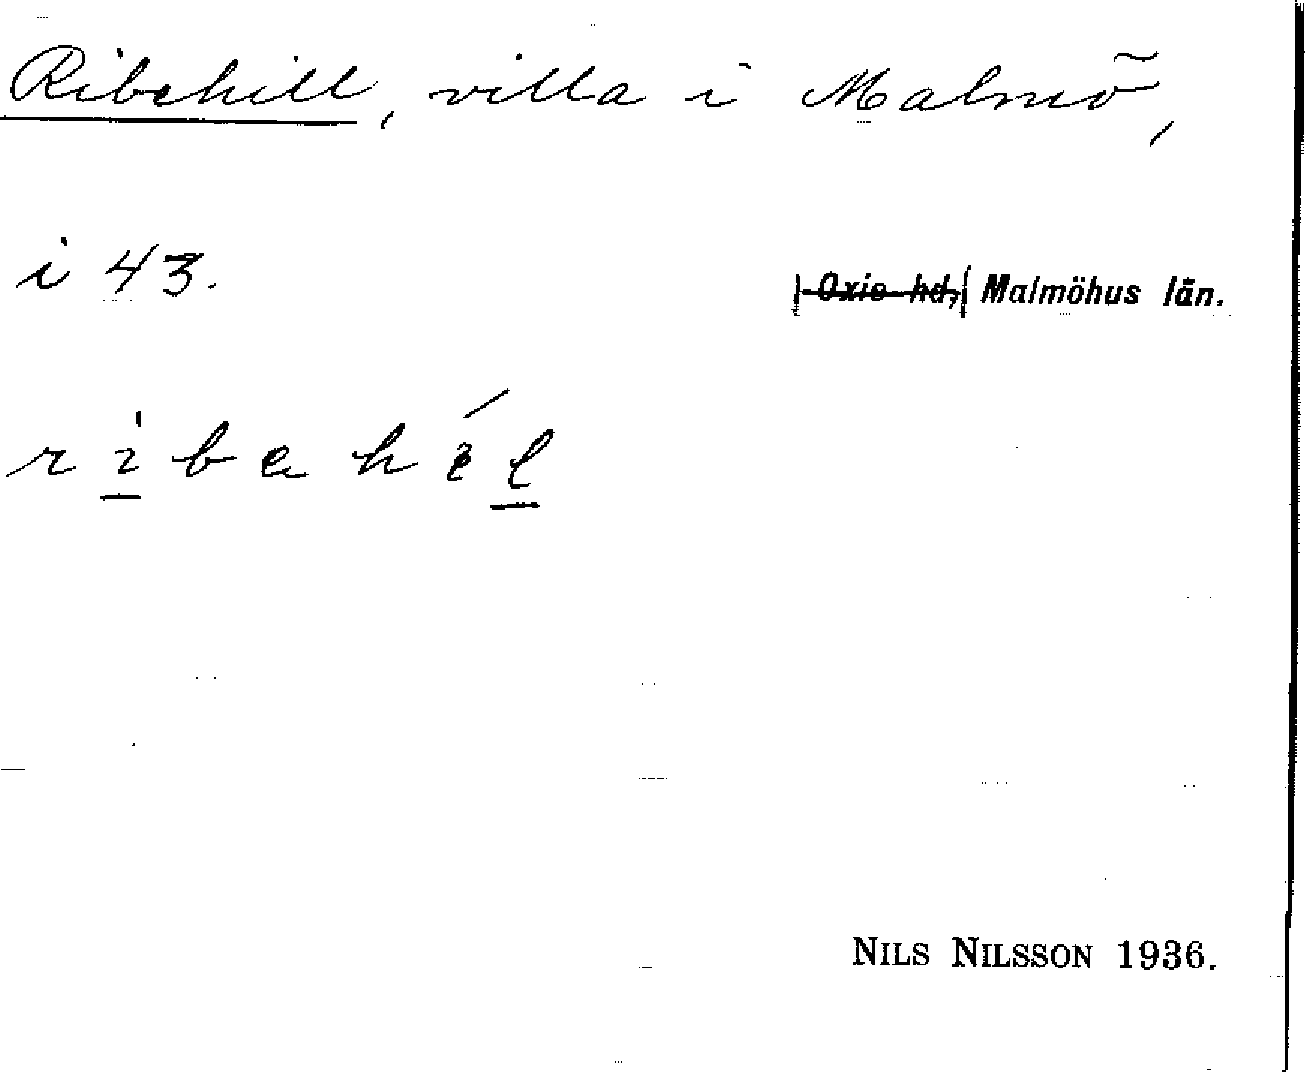 Ribehill, villa i Malmö,
i 43.
Oxie hd, Malmöhus län.
ribehíl
NILS NILSSON 1936.